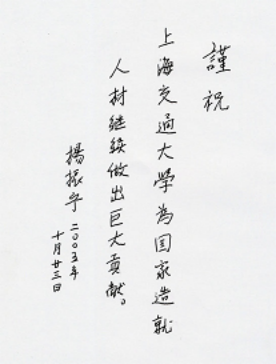 謹祝
上海交通大學為国家造就
人材継续做出巨大貢献。
楊振宁 二〇〇五年
十月廿三日